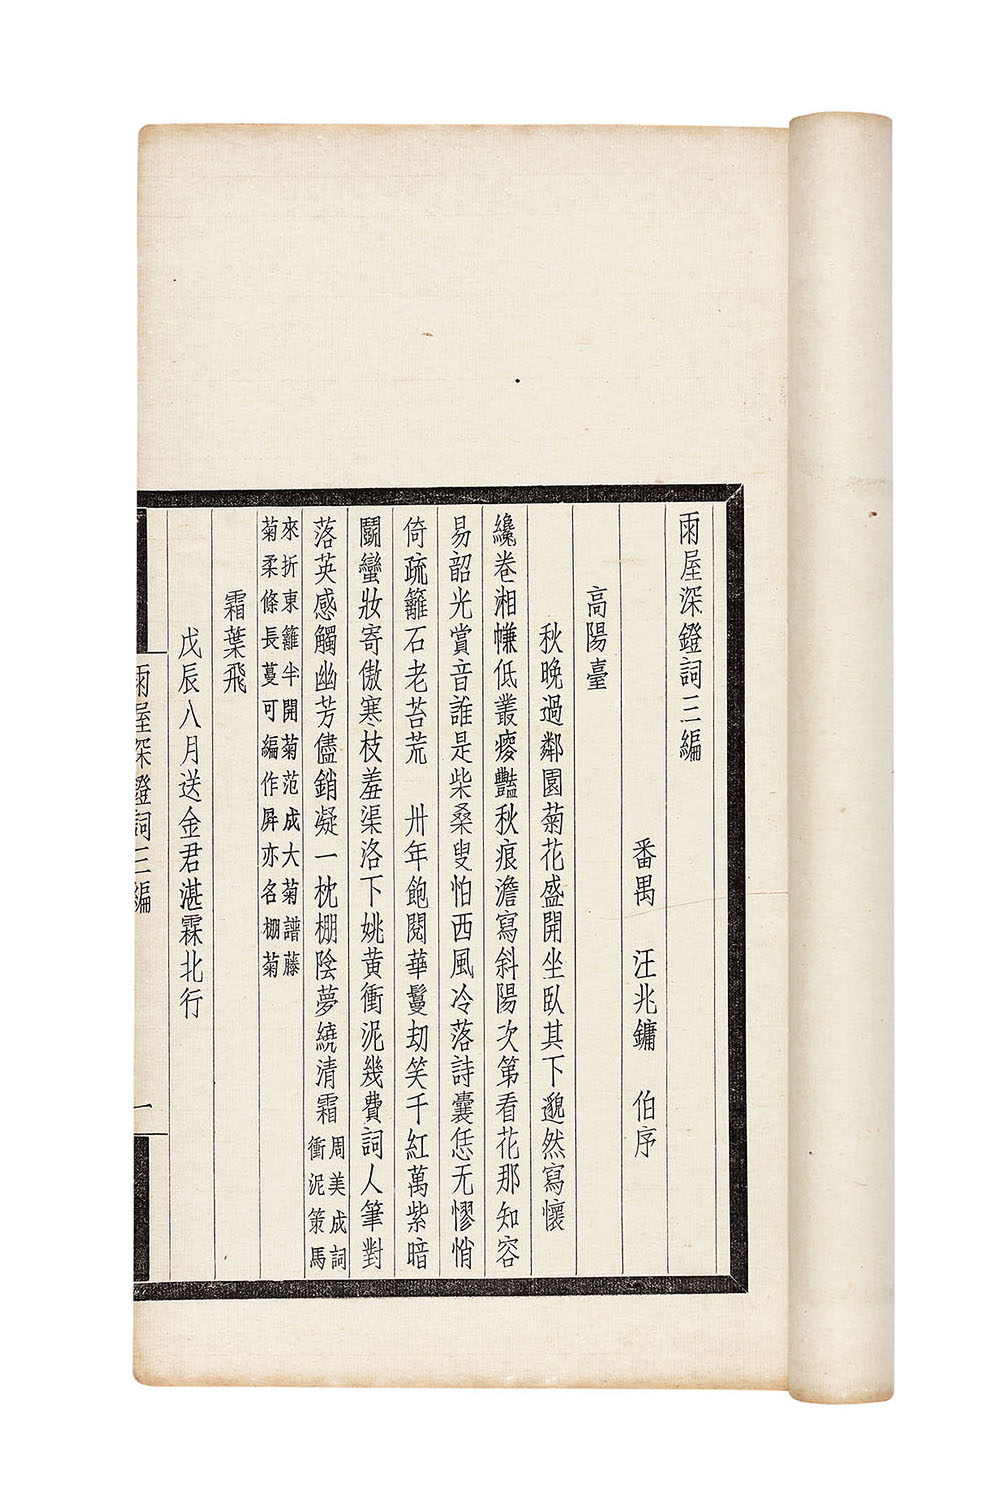 雨屋深鐙詞三編
番禺 汪兆鏞 伯序
高陽臺
秋晚過鄰園菊花盛開坐臥其下邈然寫懷
纔卷湘㡘低叢瘱豔秋痕澹寫斜陽次第看花那知容
易韶光賞音誰是柴桑叟怕西風冷落詩囊恁无憀悄
倚疏籬石老苔荒 卅年飽閱華鬘劫笑千紅萬紫暗
鬭蠻妝寄傲寒枝羞渠洛下姚黃衝泥幾費詞人筆對
落英感觸幽芳儘銷凝一枕棚陰夢繞清霜周美成詞衝泥策馬
來折東籬半開菊范成大菊譜藤
菊柔條長蔓可編作屏亦名棚菊
霜葉飛
戊辰八月送金君湛霖北行
雨屋深鐙詞三編
一